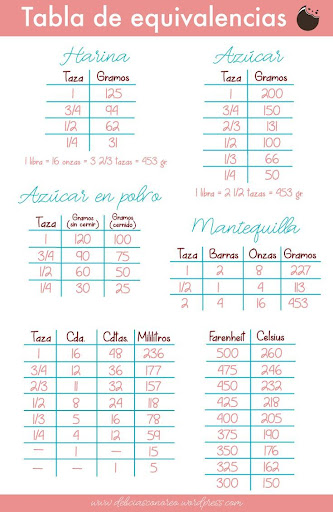 Tabla de equivalencias
Harina
Taza Gramos
1 125
3/4 94
1/2 62
1/4 31
1 libra = 16 onzas = 3 2/3 tazas = 453 gr
Azúcar
Taza Gramos
1 200
3/4 150
2/3 131
1/2 100
1/3 66
1/4 50
1 libra = 2 1/2 tazas = 453 gr
Azúcar en polvo
Taza Gramos (sin cernir) Gramos (cernido)
1 120 100
3/4 90 75
1/2 60 50
1/4 30 25
Mantequilla
Taza Barras Onzas Gramos
1 2 8 227
1/2 1 4 113
2 4 16 453
Taza Cda. Cdtas. Mililitros
1 16 48 236
3/4 12 36 177
2/3 11 32 157
1/2 8 24 118
1/3 5 16 78
1/4 4 12 59
— 1 — 15
— — 1 5
Farenheit Celsius
500 260
475 246
450 232
425 218
400 205
375 190
350 176
325 162
300 150
www.deliciasconoreo.wordpress.com